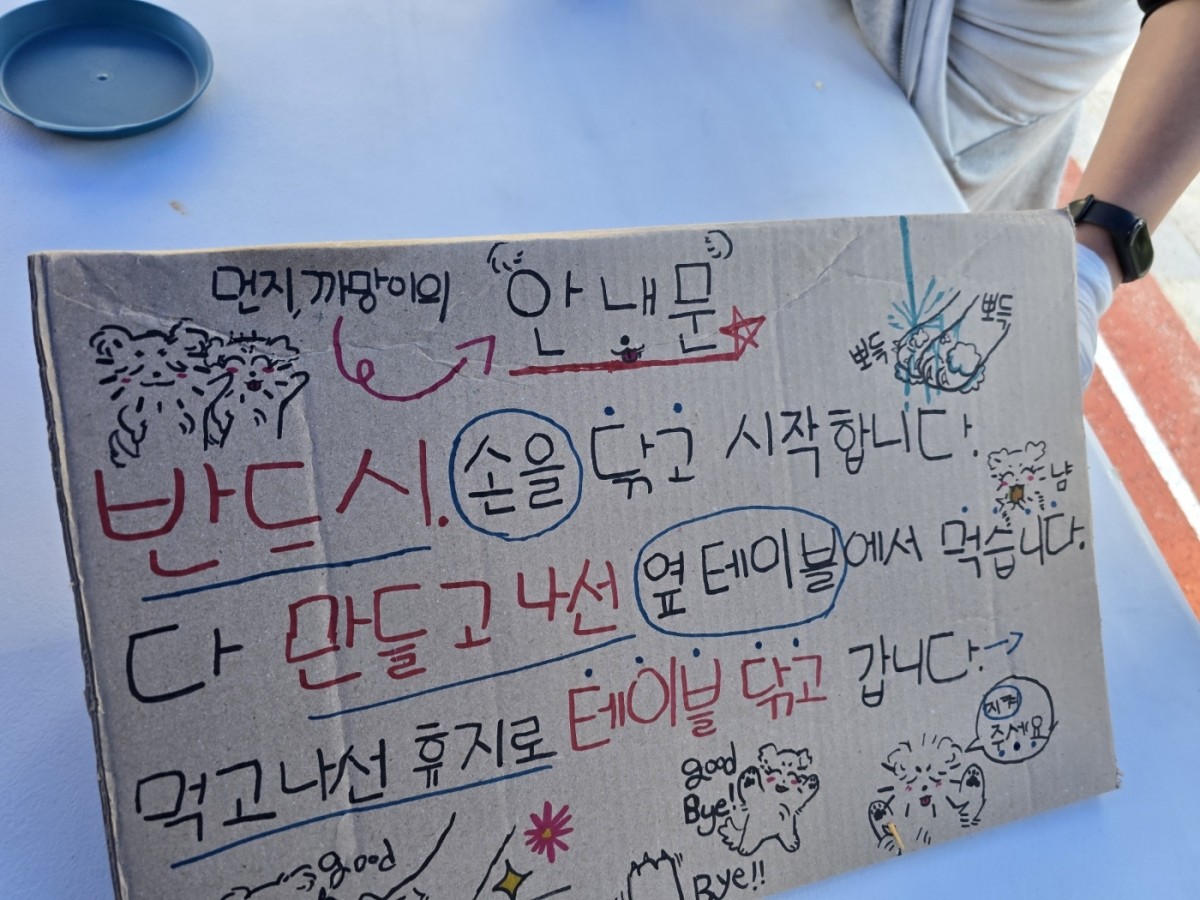 먼지,까망이의 "안내문"
뽀득 뽀득
반드시. 손을 닦고 시작합니다.
냠
다 만들고 나선 옆 테이블에서 먹습니다.
먹고나선 휴지로 테이블 닦고 갑니다.→
지켜
주세요
good
Bye!
good
Bye!!